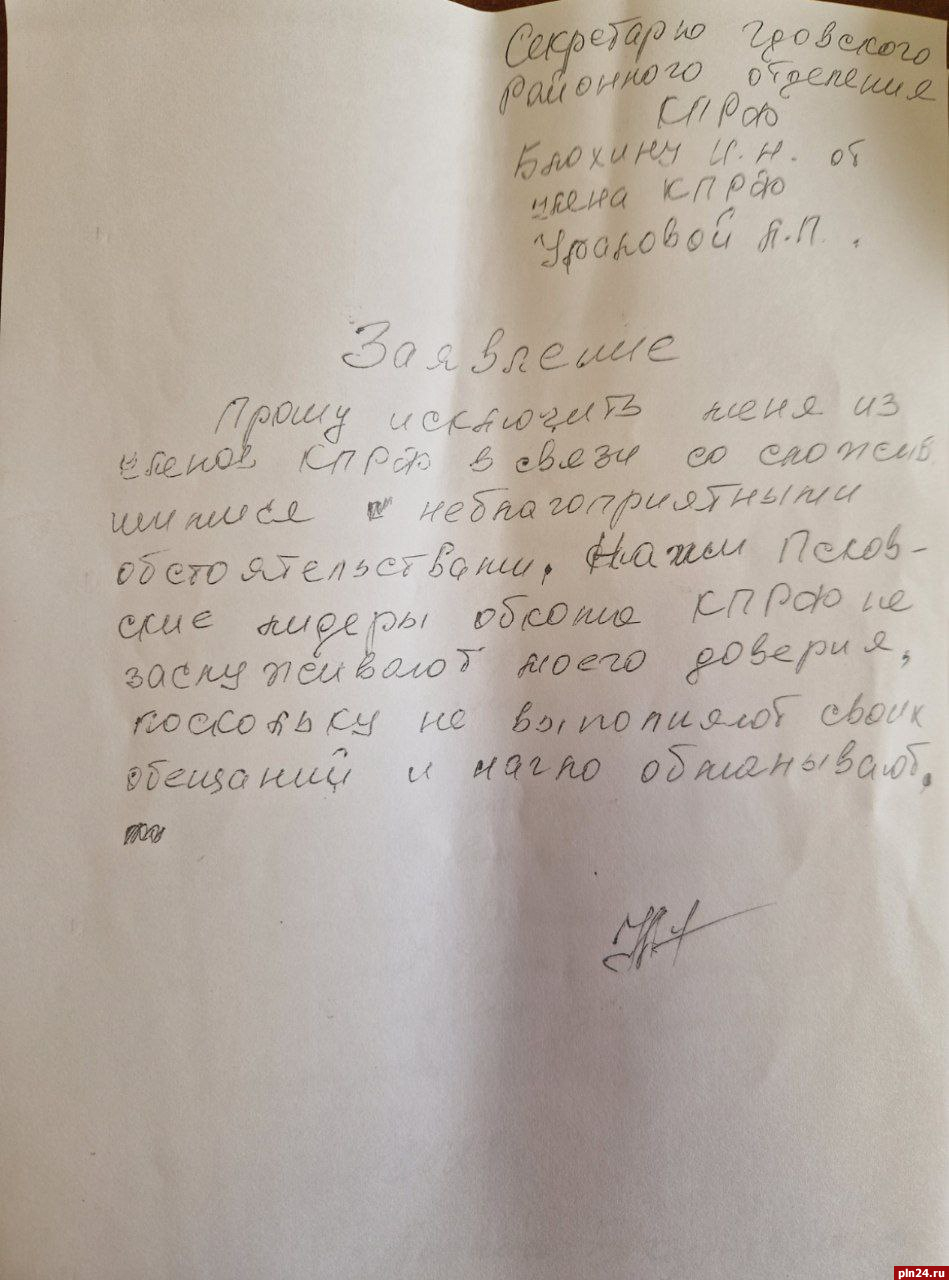 Секретарю Гдовского
районного отделения
КПРФ
Блохину И.Н. от
члена КПРФ
А.П.
Заявление
Прошу исключить меня из
членов КПРФ в связи со сложив
шимися неблагоприятными
обстоятельствами. Нами Псков-
ские лидеры обкома КПРФ не
заслуживают моего доверия,
поскольку не выполняют своих
обещаний и нагло обманывают.
pln24.ru